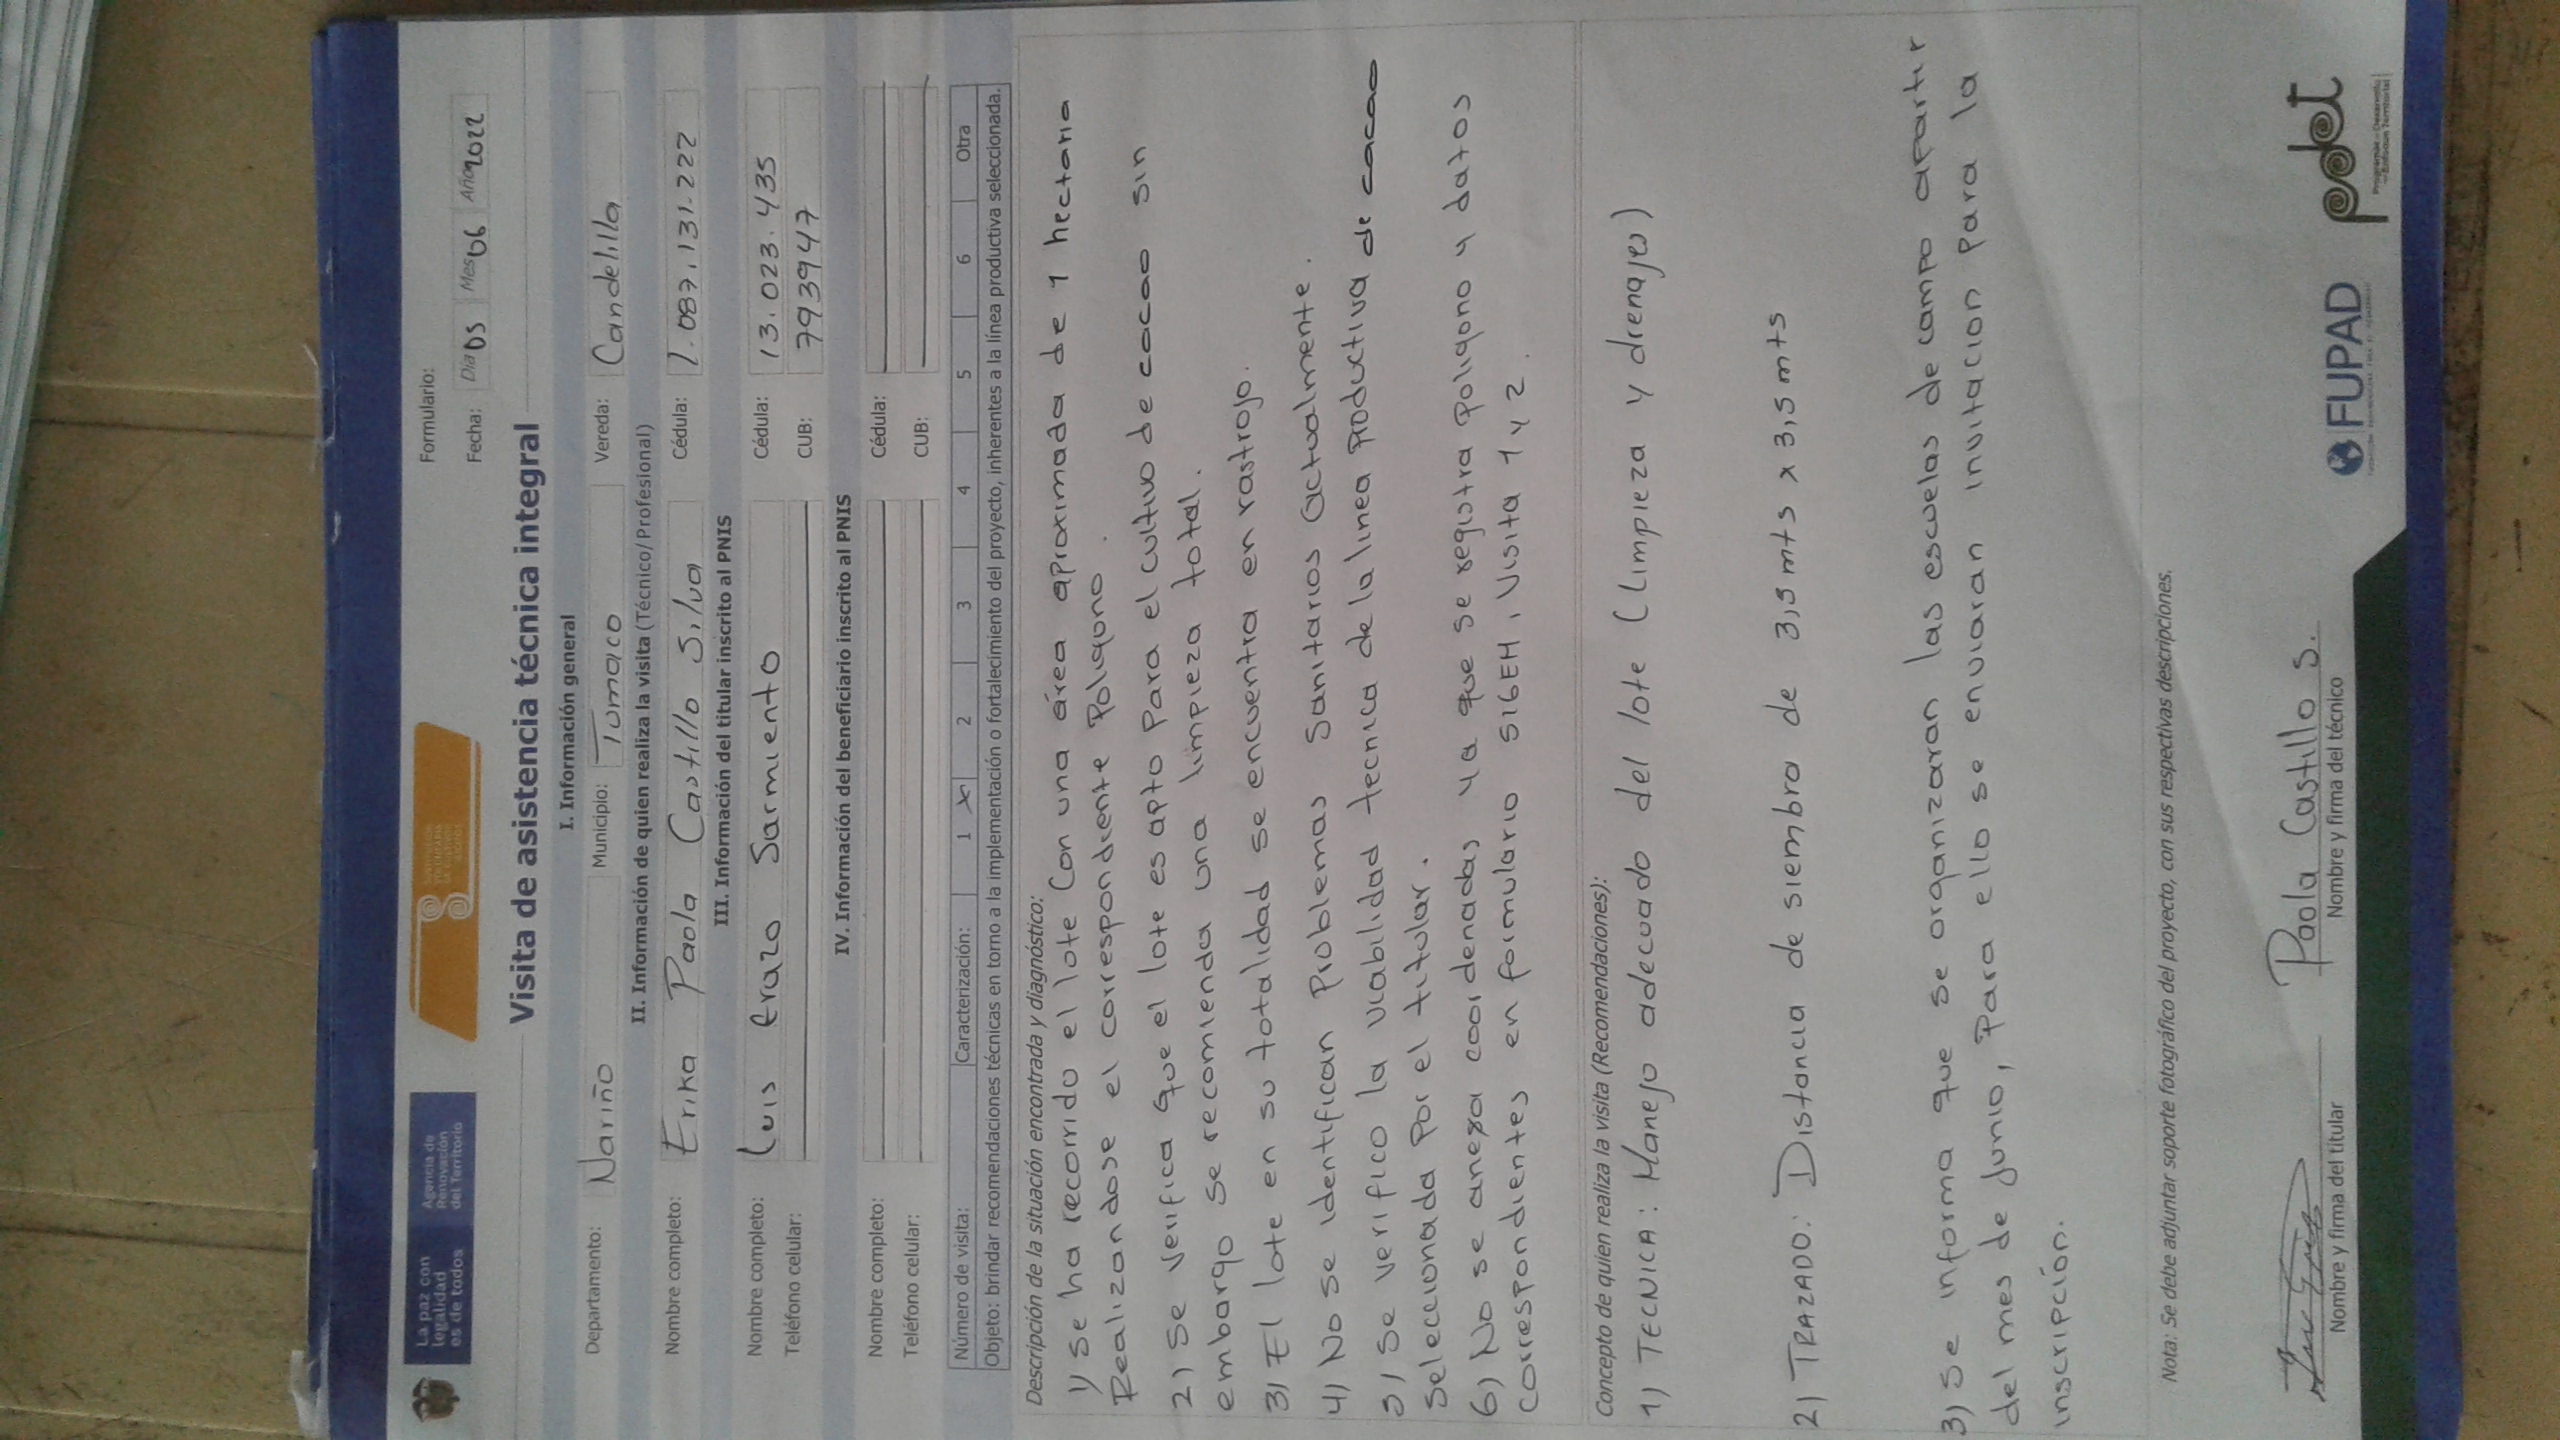 La paz con
legalidad
es de todos
Agencia de
Renovación
del Territorio
Formulario:
Fecha: Dia 05 Mes 06 Año 2022
Visita de asistencia técnica integral
I. Información general
Departamento: Nariño Municipio: Tumaco Vereda: Candelilla
II. Información de quien realiza la visita (Técnico/Profesional)
Nombre completo: Erika Paola Castillo Silva Cédula: 1.087.131.222
III. Información del titular inscrito al PNIS
Nombre completo: Luis Erazo Sarmiento Cédula: 13.023.435
Teléfono celular: CUB: 7939947
IV. Información del beneficiario inscrito al PNIS
Nombre completo: Cédula:
Teléfono celular: CUB:
Número de visita: Caracterización: 1 X 2 3 4 5 6 Otra
Objeto: brindar recomendaciones técnicas en torno a la implementación o fortalecimiento del proyecto, inherentes a la línea productiva seleccionada.
Descripción de la situación encontrada y diagnóstico:
1) se ha recorrido el lote Con una área aproximada de 1 hectaria
Realizandose el correspondiente Poligono.
2) se verifica que el lote es apto Para el cultivo de cacao sin
embargo se recomienda una limpieza total.
3) El lote en su totalidad se encuentra en rastrojo.
4) No se identifican Problemas Sanitarios actualmente.
5) se verifico la viabilidad tecnica de la linea Productiva de cacao
seleccionada Por el titular.
6) No se anexa coordenadas ya que se registra Poligono y datos
correspondientes en formulario SIGEH, Visita 1 y 2.
Concepto de quien realiza la visita (Recomendaciones):
1) TECNICA: Manejo adecuado del lote (Limpieza y drenajes)
2) TRAZADO: Distancia de siembra de 3,5 mts x 3,5 mts
3) se informa que se organizaran las escuelas de campo apartir
del mes de Junio, Para ello se enviaran invitacion Para la
inscripción.
Nota: Se debe adjuntar soporte fotográfico del proyecto, con sus respectivas descripciones.
Paola Castillo S.
Nombre y firma del titular Nombre y firma del técnico
FUPAD
pdet